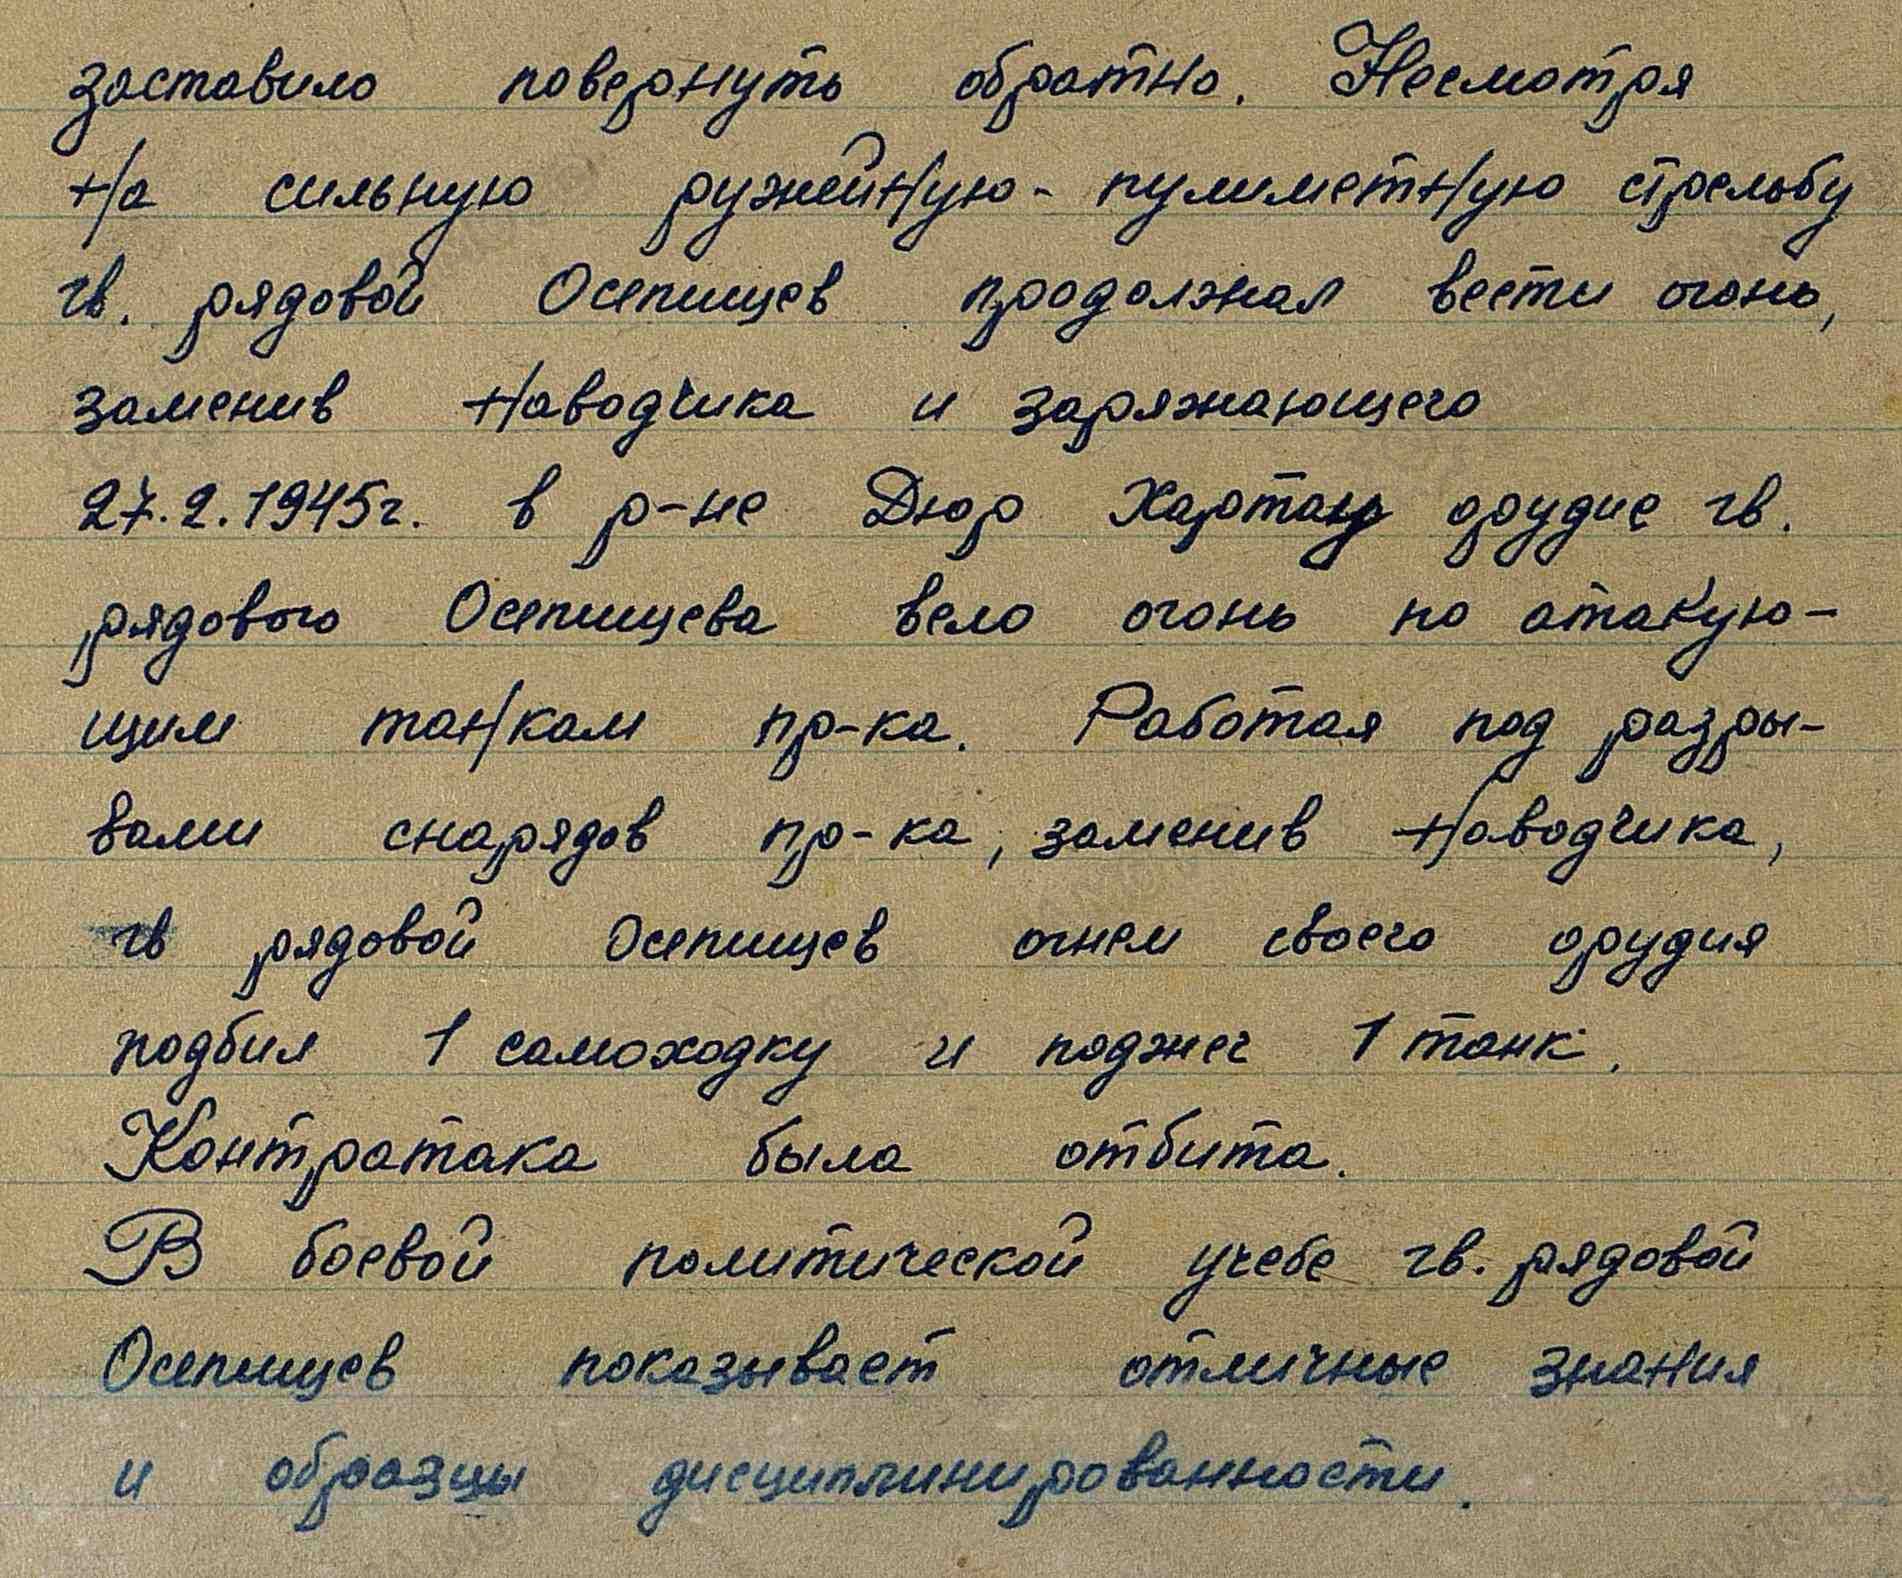 заставило повернуть обратно. Несмотря
на сильную ружейную-пулиметную стрельбу
гв. рядовой Осепищев продолжал вести огонь,
заменив наводчика и заряжающего
27.2.1945г. в р-не Дюр орудие гв.
рядового Осепищева вело огонь по атакую-
щим танкам пр-ка. Работая под разры-
вами снарядов пр-ка, заменив наводчика,
гв рядовой Осепищев огнем своего орудия
подбил 1 самоходку и поджег 1 танк.
Контратака была отбита.
В боевой политической учебе гв. рядовой
Осепищев показывает отличные знания
и образцы дисциплинированности.